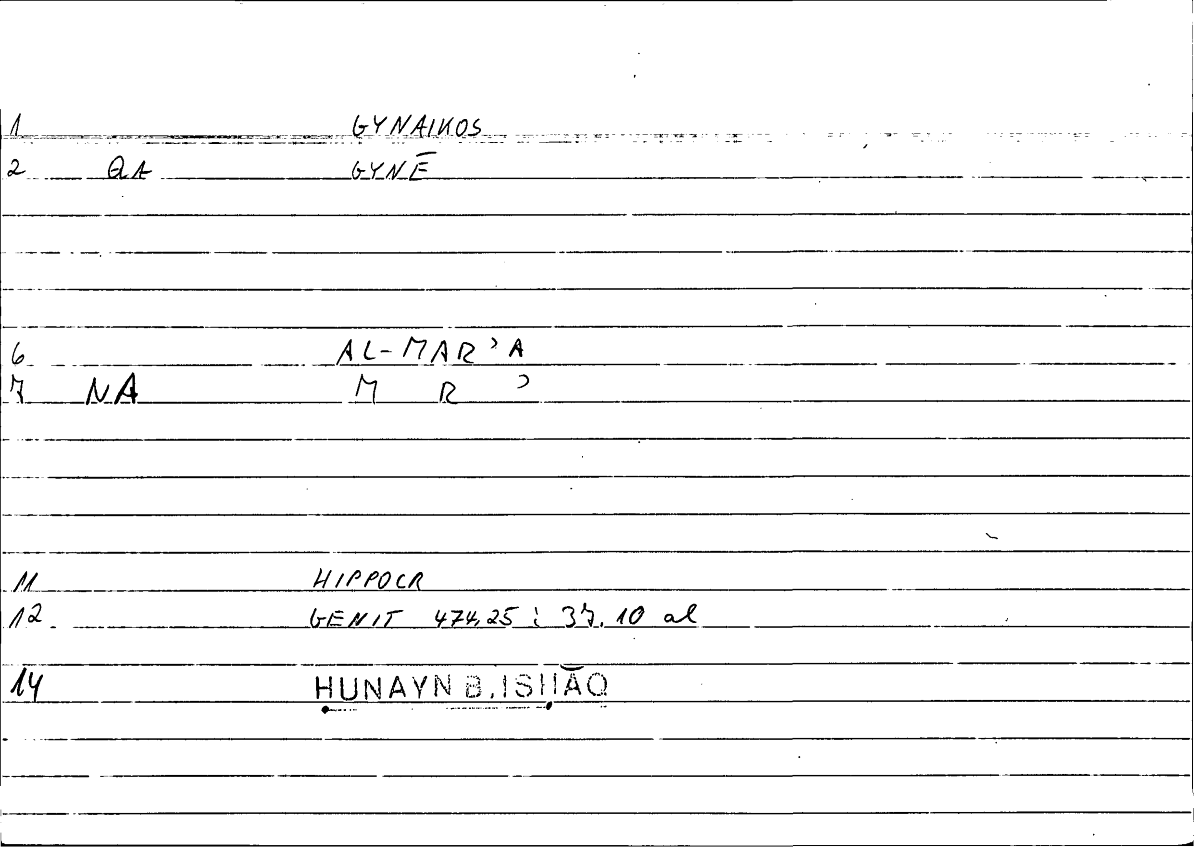 1 GYNAIKOS
2 QA GYNĒ
6 AL-MAR'A
7 NA M R '
11 HIPPOCR
12 GENIT 474,25 ; 37.10 al
14 ḤUNAYN B. ISḤĀQ